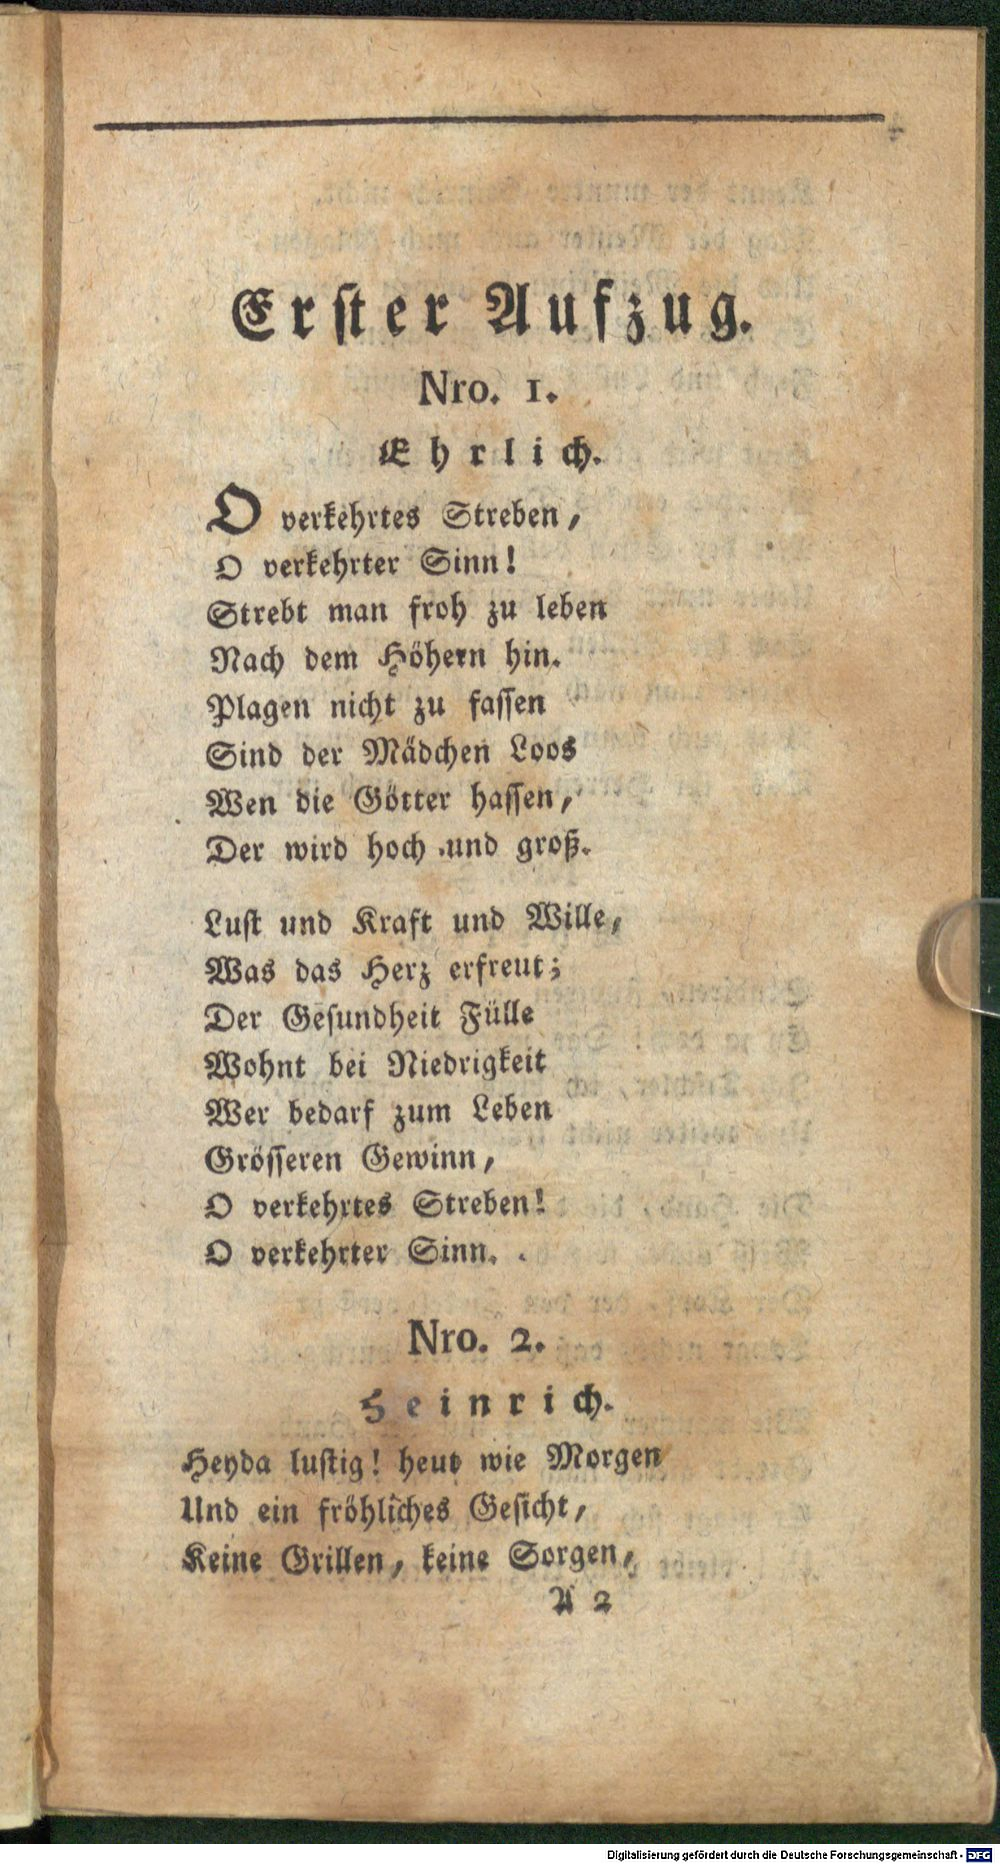 Erster Aufzug.
Nro. 1.
Ehrlich.
O verkehrtes Streben,
O verkehrter Sinn!
Strebt man froh zu leben
Nach dem Höhern hin.
Plagen nicht zu fassen
Sind der Mädchen Loos
Wen die Götter hassen,
Der wird hoch und groß.
Lust und Kraft und Wille,
Was das Herz erfreut;
Der Gesundheit Fülle
Wohnt bei Niedrigkeit
Wer bedarf zum Leben
Grösseren Gewinn,
O verkehrtes Streben!
O verkehrter Sinn.
Nro. 2.
Heinrich.
Heyda lustig! heut wie Morgen
Und ein fröhliches Gesicht,
Keine Grillen, keine Sorgen,
A 2
Digitalisierung gefördert durch die Deutsche Forschungsgemeinschaft - DFG